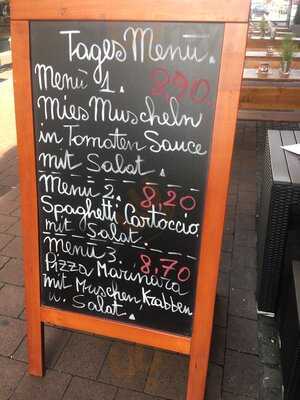 Tages Menu.
Menü 1. 8,90.
Mies Muscheln
in Tomaten Sauce
mit Salat.
Menü 2. 8,20
Spaghetti Cartoccio
mit Salat.
Menü 3. 8,70
Pizza Marinara
mit Muschen, Krabben
u. Salat.